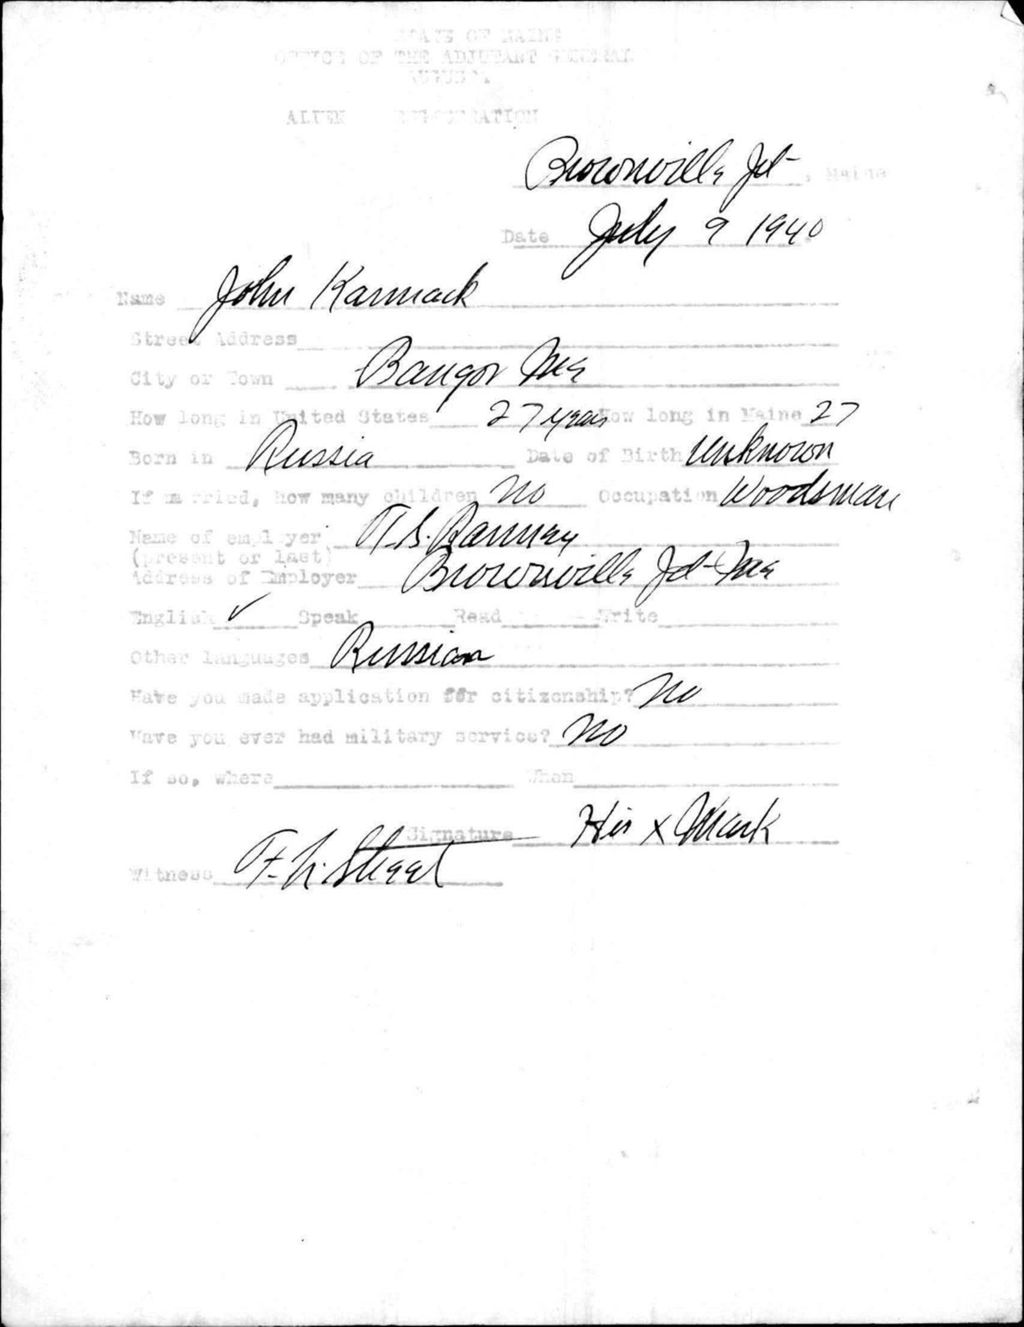 STATE OF MAINE
OFFICE OF THE ADJUTANT GENERAL
AUGUSTA
ALIEN REGISTRATION
Brownville Jct, Maine
Date July 9 1940
Name John Karmack
Street Address
City or Town Bangor Me
How long in United States 27 years How long in Maine 27
Born in Russia Date of Birth Unknown
If married, how many children No Occupation Woodsman
Name of employer T.S. Ranney
(present or last)
Address of Employer Brownville Jct Me
English ✓ Speak Read Write
Other languages Russian
Have you made application for citizenship? No
Have you ever had military service? No
If so, where When
Signature His x Mark
Witness